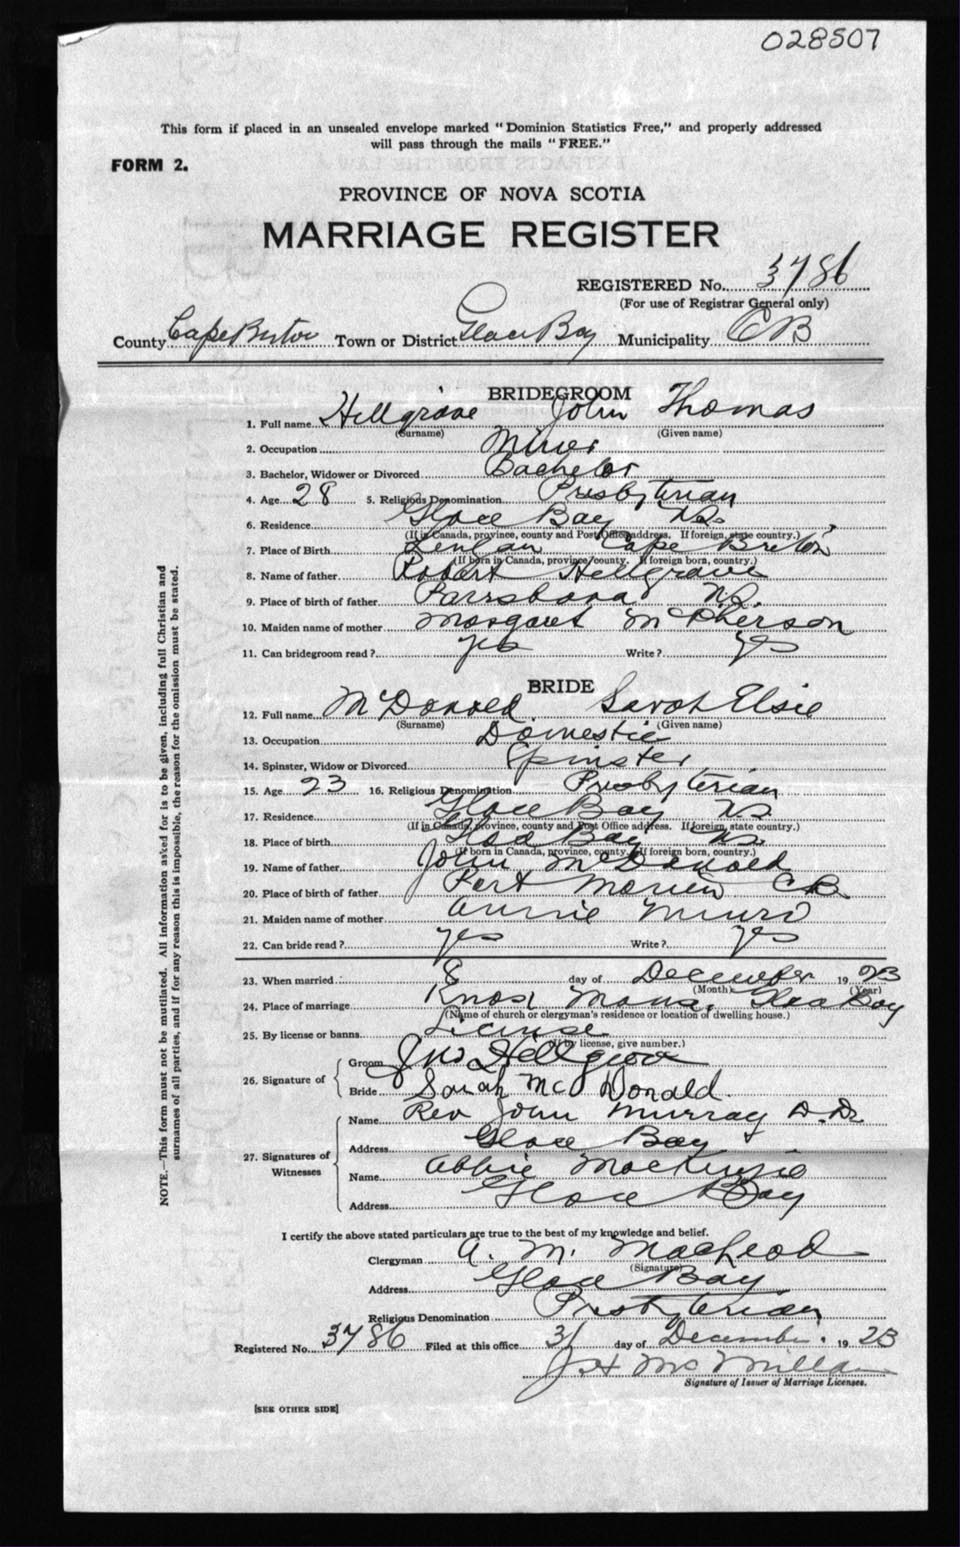 028507
This form if placed in an unsealed envelope marked "Dominion Statistics Free," and properly addressed
will pass through the mails "FREE."
FORM 2.
PROVINCE OF NOVA SCOTIA
MARRIAGE REGISTER
REGISTERED No. 3786
(For use of Registrar General only)
County Cape Breton Town or District Glace Bay Municipality CB
BRIDEGROOM
1. Full name Hillgrove John Thomas
(Surname) (Given name)
2. Occupation Miner
3. Bachelor, Widower or Divorced Bachelor
4. Age 28 5. Religious Denomination Presbyterian
6. Residence Glace Bay NS
(If in Canada, province, county and Post Office address. If foreign, state country.)
7. Place of Birth Cape Breton
(If born in Canada, province, county. If foreign born, country.)
8. Name of father Robert Hillgrove
9. Place of birth of father Parrsboro NS
10. Maiden name of mother Margaret McPherson
11. Can bridegroom read? yes Write? yes
BRIDE
12. Full name McDonald Sarah Elsie
(Surname) (Given name)
13. Occupation Domestic
14. Spinster, Widow or Divorced Spinster
15. Age 23 16. Religious Denomination Presbyterian
17. Residence Glace Bay NS
(If in Canada, province, county and Post Office address. If foreign, state country.)
18. Place of birth Glace Bay NS
(If born in Canada, province, county. If foreign born, country.)
19. Name of father John McDonald
20. Place of birth of father Port Morien CB
21. Maiden name of mother Annie Munro
22. Can bride read? yes Write? yes
23. When married 8 day of December 1923
(Month) (Year)
24. Place of marriage Knox Manse, Glace Bay
(Name of church or clergyman's residence or location of dwelling house.)
25. By license or banns License
(If by license, give number.)
26. Signature of
Groom Jno Hillgrove
Bride Sarah McDonald
27. Signatures of Witnesses
Name Rev John Murray D.D.
Address Glace Bay
Name Abbie MacKenzie
Address Glace Bay
I certify the above stated particulars are true to the best of my knowledge and belief.
Clergyman A. M. MacLeod
(Signature)
Address Glace Bay
Religious Denomination Presbyterian
Registered No. 3786 Filed at this office 31 day of December 1923
McMillan
Signature of Issuer of Marriage Licenses.
[SEE OTHER SIDE]
NOTE.—This form must not be mutilated. All information asked for is to be given, including full Christian and
surnames of all parties, and if for any reason this is impossible, the reason for the omission must be stated.